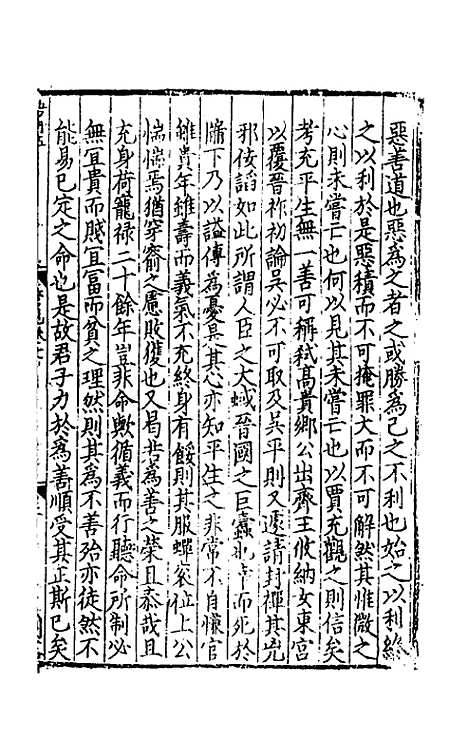 惡善道也惡為之者之或勝為己之不利也始之以利終
之以利於是惡積而不可掩罪大而不可解然其惟微之
心則未嘗亡也何以見其未嘗亡也以賈充觀之則信矣
考充平生無一善可稱弒高貴鄉公出齊王攸納女東宮
以覆晉祚初論吳必不可取及吳平則又遽請封禪其兇
邪佞謟如此所謂人臣之大蜮晉國之巨蠹也幸而死於
牖下乃以謚傳為憂是其心亦知平生之非常不自慊官
雖貴年雖壽而義氣不充終身有餒則其服蟬袞位上公
惴惴焉猶穿窬之慮敗獲也又曷若為善之榮且泰哉且
充身荷寵祿二十餘年豈非命歟循義而行聽命所制必
無宜貴而賤宜富而貧之理然則其為不善殆亦徒然不
能易已定之命也是故君子力於為善順受其正斯已矣